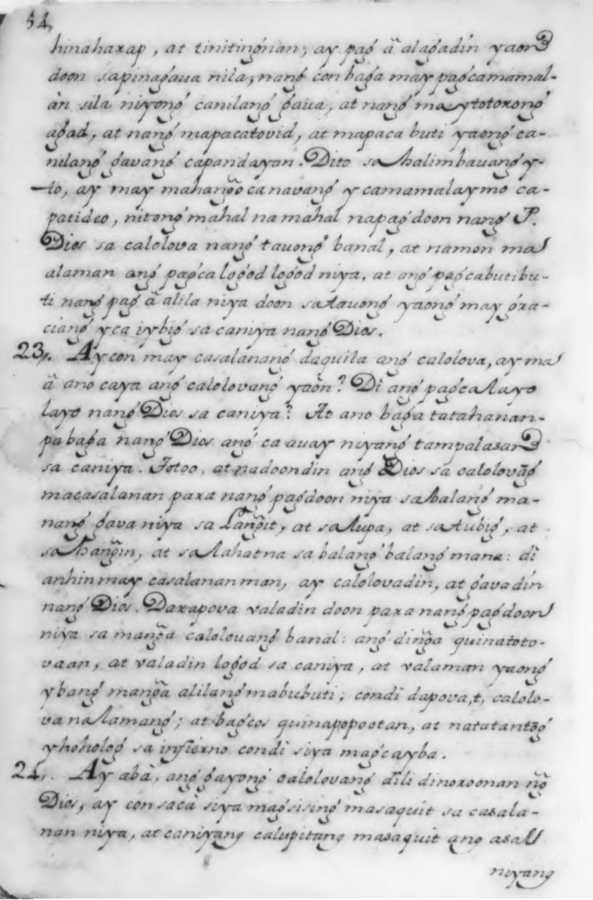 54,
hinaharap, at tinitingnan; ay pag̃ ã alagadin yaon
doon sapinag̃aua nila, nang̃ con bag̃a may pag̃camamal-
an sila niyong̃ canilang̃ g̃aua, at nang̃ maytotorong̃
ag̃ad, at nang̃ mapacatovid, at mapaca buti yaong̃ ca-
nilang̃ g̃avang̃ capandayan. Dito sa halimbauang̃ y-
to, ay may mahang̃o ca navang̃ ycamamalaymo ca-
patideo, nitong̃ mahal na mahal napag̃doon nang̃ P.
Dios sa calolova nang̃ tauong̃ banal, at namon ma
alaman ang̃ pag̃ca log̃od log̃od niya, at ang̃ pag̃cabutibu-
ti nang̃ pag̃ ã alila niya doon sa tauong̃ yaong̃ may g̃ra-
ciang̃ yca iybig̃ sa caniya nang̃ Dios.
23,. Ay con may casalanang̃ daquila ang̃ calolova, ay ma
ã ano caya ang̃ calolovang̃ yaõn? Di ang̃ pag̃ca layo
layo nang̃ Dios sa caniya? At ano bag̃a tatahanan-
pa bag̃a nang̃ Dios ang̃ ca auay niyang̃ tampalasan
sa caniya. Totoo, at nadoondin ang̃ Dios sa calolovag̃
macasalanan para nang̃ pag̃doon niya sa balang̃ ma-
nang̃ g̃ava niya sa Lang̃it, at sa lupa, at sa tubig̃, at
sa hang̃in, at sa lahat na sa balang̃ balang̃ mana: di
anhin may casalanan man, ay calolovadin, at g̃avadin
nang̃ Dios. Darapova valadin doon para nang̃ pag̃doon
niya sa mang̃a calolouang̃ banal: ang̃ ding̃a quinatoto-
vaan, at valadin log̃od sa caniya, at valaman yaong̃
ybang̃ mang̃a alilang̃ mabubuti; condi dapova,t, calolo-
va na lamang̃; at bag̃cos quinapopootan, at natatantog̃
yhoholog̃ sa infierno condi siya mag̃cayba.
24,. Ay abã, ang̃ g̃ayong̃ calolovang̃ dili dinoroonan ng̃
Dios, ay con saca siya mag̃sising̃ masaquit sa casala-
nan niya, at caniyang calupitang masaquit ang asal
niyang